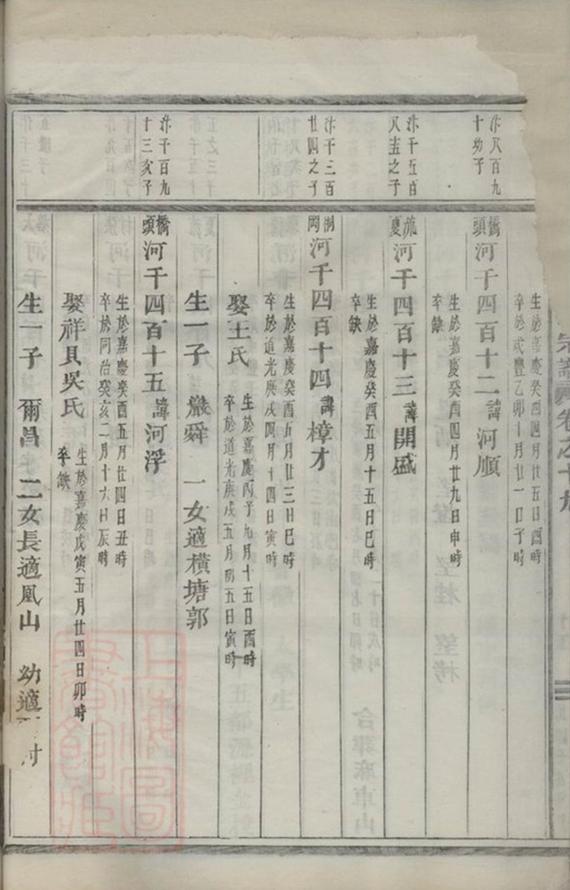 生於嘉慶癸酉四月廿五日酉時
卒於咸豐乙卯十月廿一日子時
汴八百九
十幼子
橋
頭
河千四百十二諱河順
生於嘉慶癸酉四月廿九日申時
卒缺
汴千五百
之子
夏
河千四百十三諱開盛
生於嘉慶癸酉五月十五日巳時
卒缺
汴千三百
廿四之子
河千四百十四諱樟才
生於嘉慶癸酉五月廿三日巳時
卒於道光庚戌四月十四日寅時
娶王氏
生於嘉慶丙子九月十五日酉時
卒於道光庚戌五月初五日寅時
生一子 嚴舜 一女適橫塘郭
汴千百九
十三亥子
橋
頭
河千四百十五諱河浮
生於嘉慶癸酉五月廿四日丑時
卒於同治癸亥二月十六日辰時
娶祥貝吳氏
生於嘉慶戊寅五月廿四日卯時
卒缺
生一子 爾昌 二女長適鳳山 幼適 村